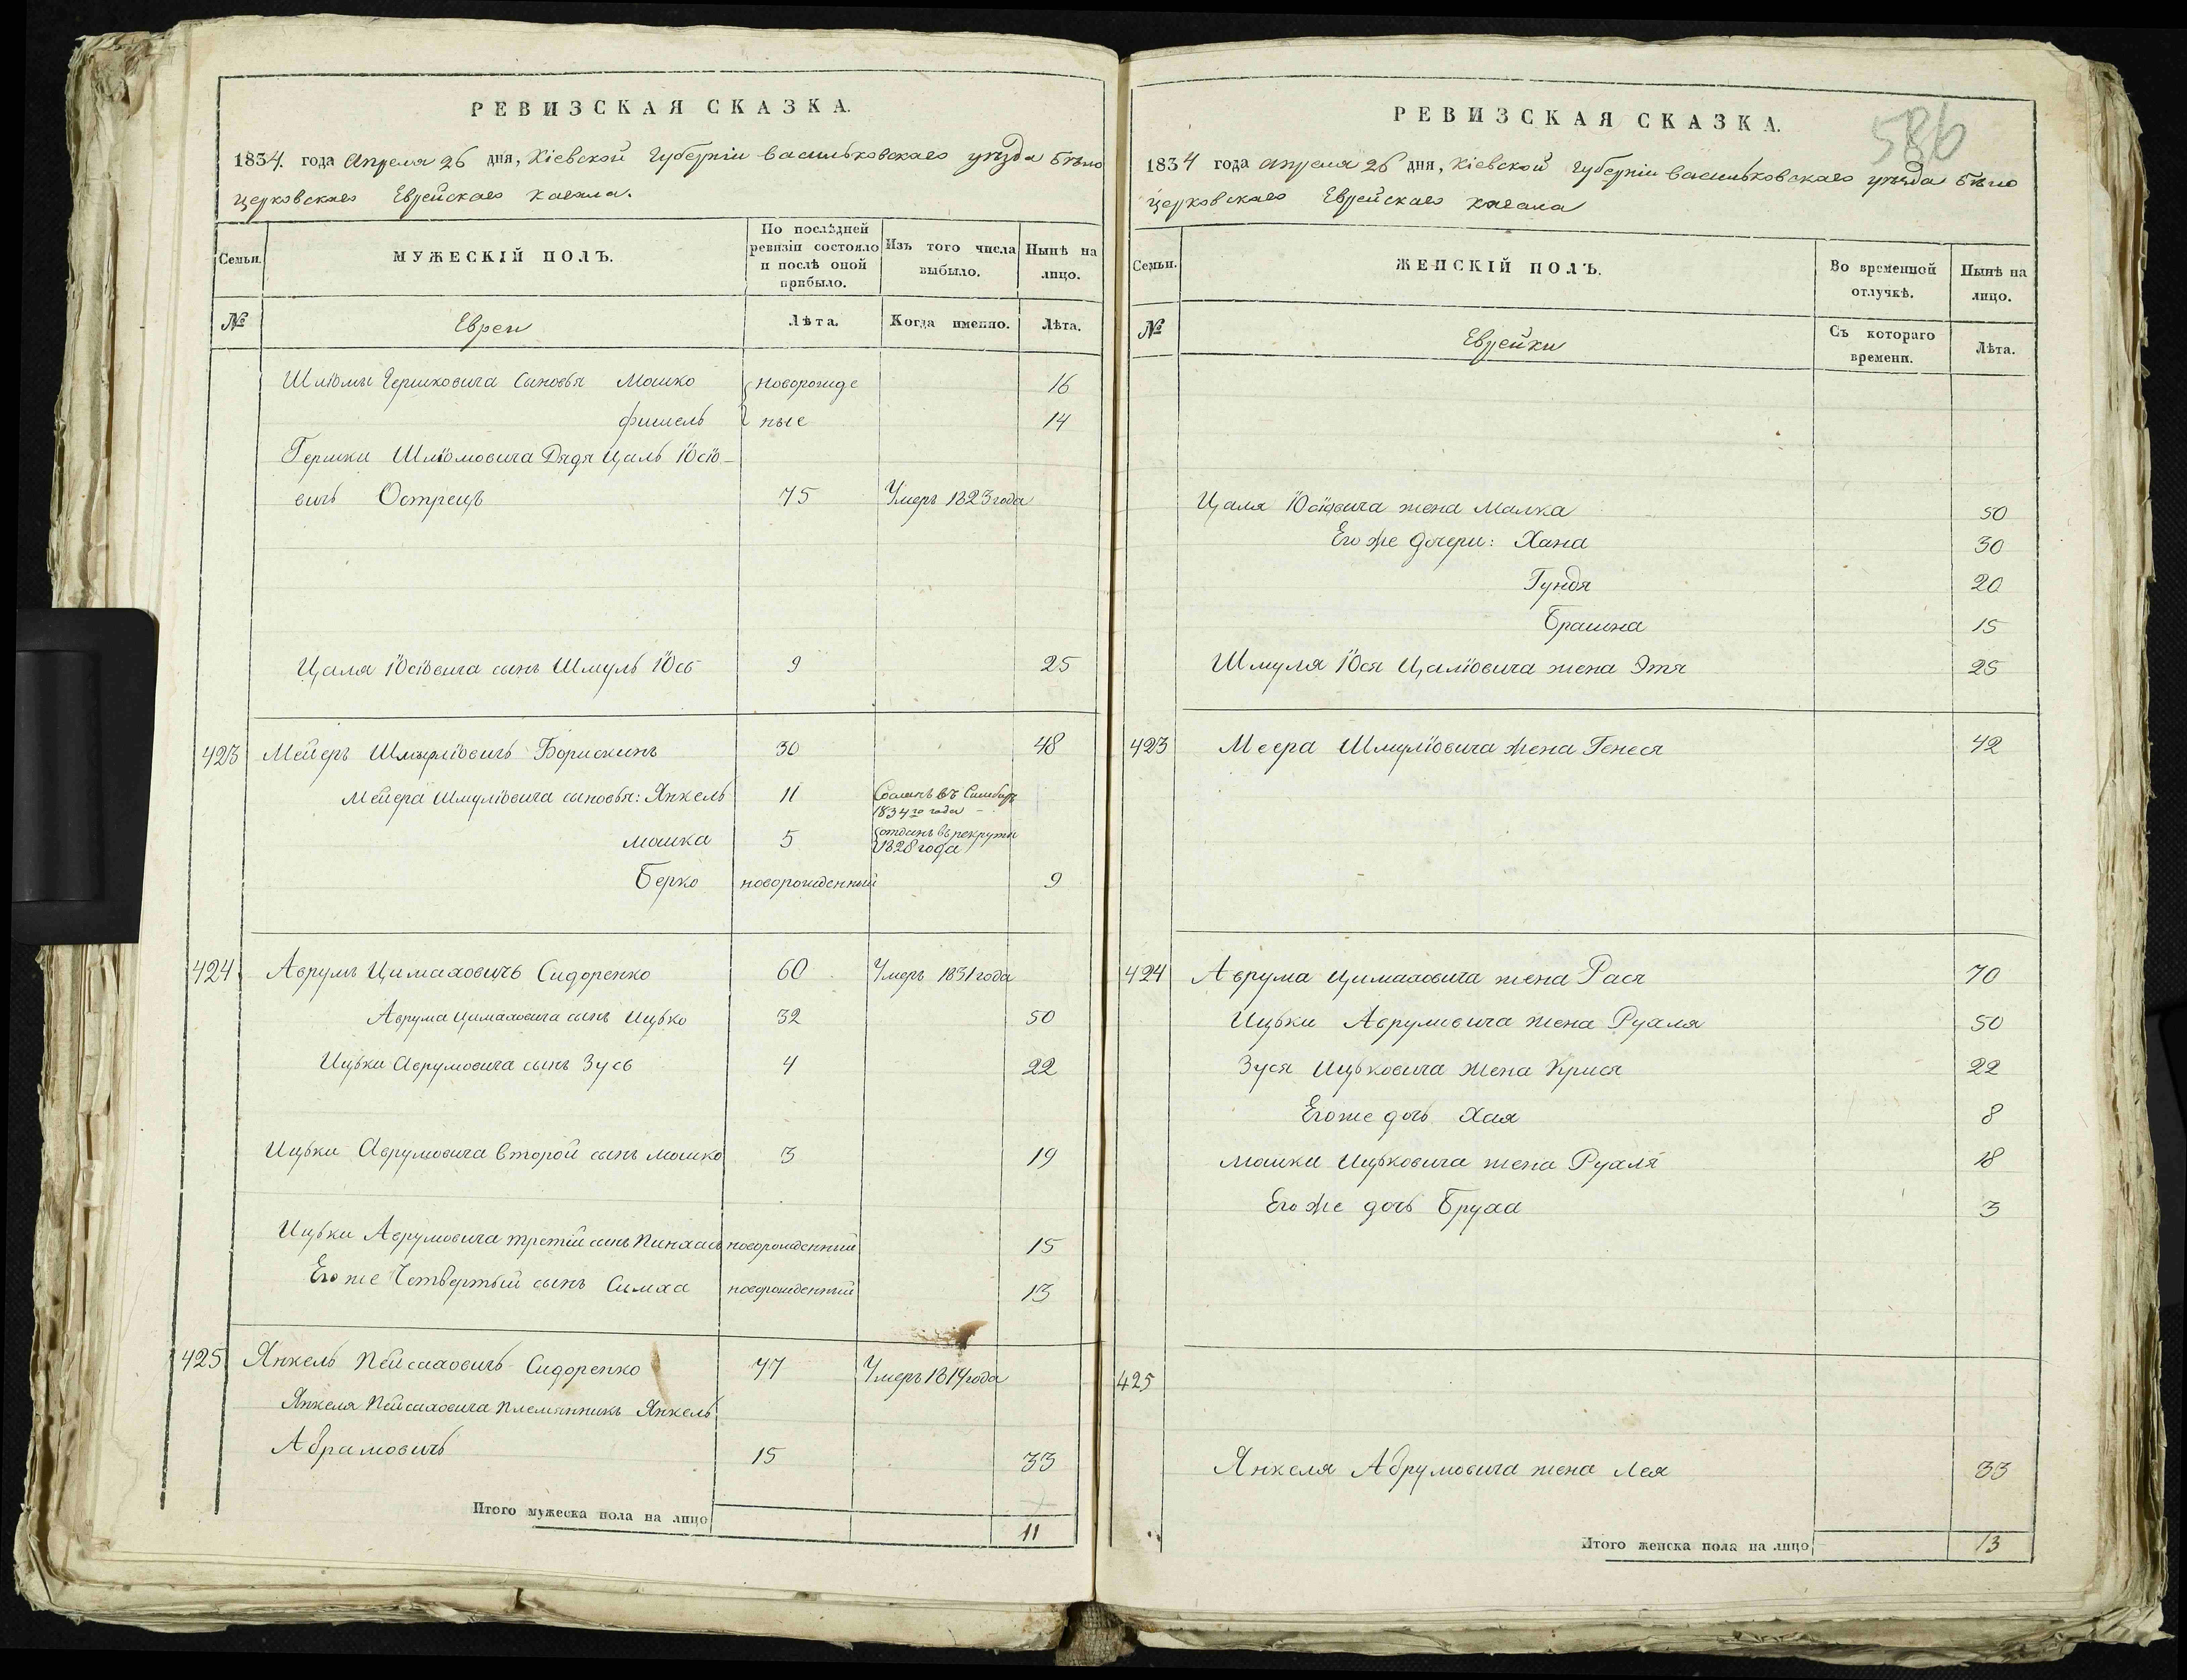 РЕВИЗСКАЯ СКАЗКА.
1834. года Апреля 26 дня, Кіевской Губерніи васильковскаго уѣзда бѣло
церковскаго Еврейскаго кагала.
Семьи.
МУЖЕСКІЙ ПОЛЪ.
По послѣдней ревизіи состояло и послѣ оной прибыло.
Изъ того числа выбыло.
Нынѣ на лицо.
№
Евреи
Лѣта.
Когда именно.
Лѣта.
Шліомы Гершковича Сыновья Мошко новорожде 16
фишель ные 14
Гершки Шліомовича Дядя Цаль Іосіо-
вичъ Острецъ 75 Умеръ 1823 года
Цаля Іосіовича сынъ Шмуль Іось 9 25
423 Мейеръ Шмуліовичъ Борискинъ 30 48
Мейера Шмуліовича сыновья: Янкель 11 Сосланъ въ Сибирь
1834го года
мошка 5 отданъ въ рекруты
1828 года
Берко новорожденный 9
424 Аврумъ Цимаховичъ Сидоренко 60 Умеръ 1831 года
Аврума Цимаховича сынъ Ицько 32 50
Ицьки Аврумовича сынъ Зусь 4 22
Ицьки Аврумовича второй сынъ мошко 3 19
Ицьки Аврумовича третій сынъ Пинхась новорожденный 15
Его же Четвертый сынъ Симха новорожденный 13
425 Янкель Пейсаховичъ Сидоренко 77 Умеръ 1819 года
Янкеля Пейсаховича племянникъ Янкель
Абрамовичъ 15 33
Итого мужеска пола на лицо 11
586
РЕВИЗСКАЯ СКАЗКА.
1834 года апреля 26 дня, Кіевской Губерніи васильковскаго уѣзда бѣло
церковскаго Еврейскаго кагала
Семьи.
ЖЕНСКІЙ ПОЛЪ.
Во временной отлучкѣ.
Нынѣ на лицо.
№
Еврейки
Съ котораго времени.
Лѣта.
Цаля Іосіовича жена Малка 50
Его же дочери: Хана 30
Гундя 20
Брашна 15
Шмуля Іося Цаліовича жена Этя 25
423 Меера Шмуліовича жена Генеся 42
424 Аврума Цимаховича жена Рася 70
Ицьки Аврумовича жена Рухля 50
Зуся Ицьковича жена Крися 22
Его же дочь Хая 8
мошки Ицьковича жена Рухля 18
Его же дочь Бруха 3
425
Янкеля Абрумовича жена Лея 33
Итого женска пола на лицо 13